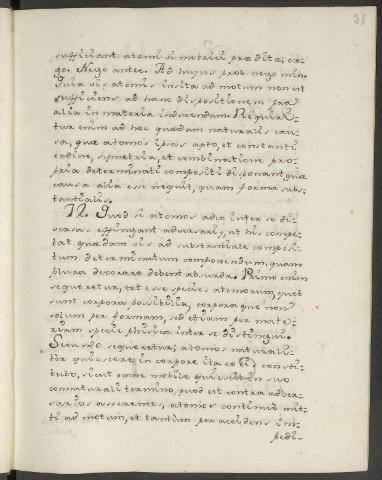 35
sufficiant atomi vi motrici præditæ; er-
go. Nego antec. Ad hujus prob. nego min.
Quia vis atomis insita ad motum non est
sufficiens ad hanc dispositionem præ
alia in materia inducendam. Requiri-
tur enim ad hoc quædam naturalis cau-
sa, quæ atomos ipsas apto, et constanti
ordine, symetria, et combinatione pro-
pria determinati compositi disponant, quæ
causa alia esse nequit, quam forma subs-
tantialis.
12. Quod si atomos adeo inter se di-
versas effingant adversarii, ut his compe-
tat quædam vis ad substantiale composi-
tum determinatum componendum, quam
plura devorare debent absurda. Primo enim
sequeretur, tot esse species atomorum, quot
sunt corpora possibilia, corpora que non
solum per formam, sed etiam per mate-
riam specie phisica inter se distingui.
Secundo sequeretur; atomos naturali-
ter quiescere in corpore ita ex eis consti-
tuto, sicut omne mobile quiescit in suo
connaturali termino, quod est contra adver-
sarios asserentes, atomos continuo niti
ad motum, et tantum per accidens im-
pedi-